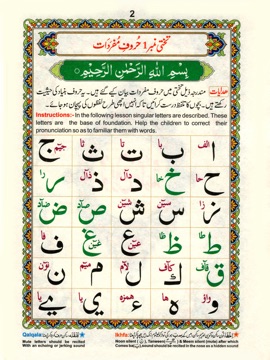 2
تختی نمبر 1 حروف مفردات
بِسْمِ اللهِ الرَّحْمٰنِ الرَّحِيْمِ
ہدایات: مندرجہ ذیل تختی میں حروف مفردات بیان کیے گئے ہیں۔ یہ حروف بنیاد کی حیثیت
رکھتے ہیں۔ بچوں کا تلفظ درست کرائیں تاکہ انہیں اچھی طرح لفظوں کی پہچان ہو جائے۔
Instructions:- In the following lesson singular letters are described. These
letters are the base of foundation. Help the children to correct their
pronunciation so as to familiar them with words.
ا الف ب با ت تا ث ثا ج جیم
ح حا خ خا د دال ذ ذال ر را
ز زا س سین ش شین ص صاد ض ضاد
ط طا ظ ظا ع عین غ غین ف فا
ق قاف ك کاف ل لام م میم ن نون
و واؤ ه ها ء همزه ي یا ے یا
Qalqala:
Mute letters should be recited
With an echoing or jerking sound
Ikhfa:
Noon silent ( ), Tanween ( ) & Meem silent (mute) after which
Comes ba( ) sound should be recited in the nose as a hidden sound